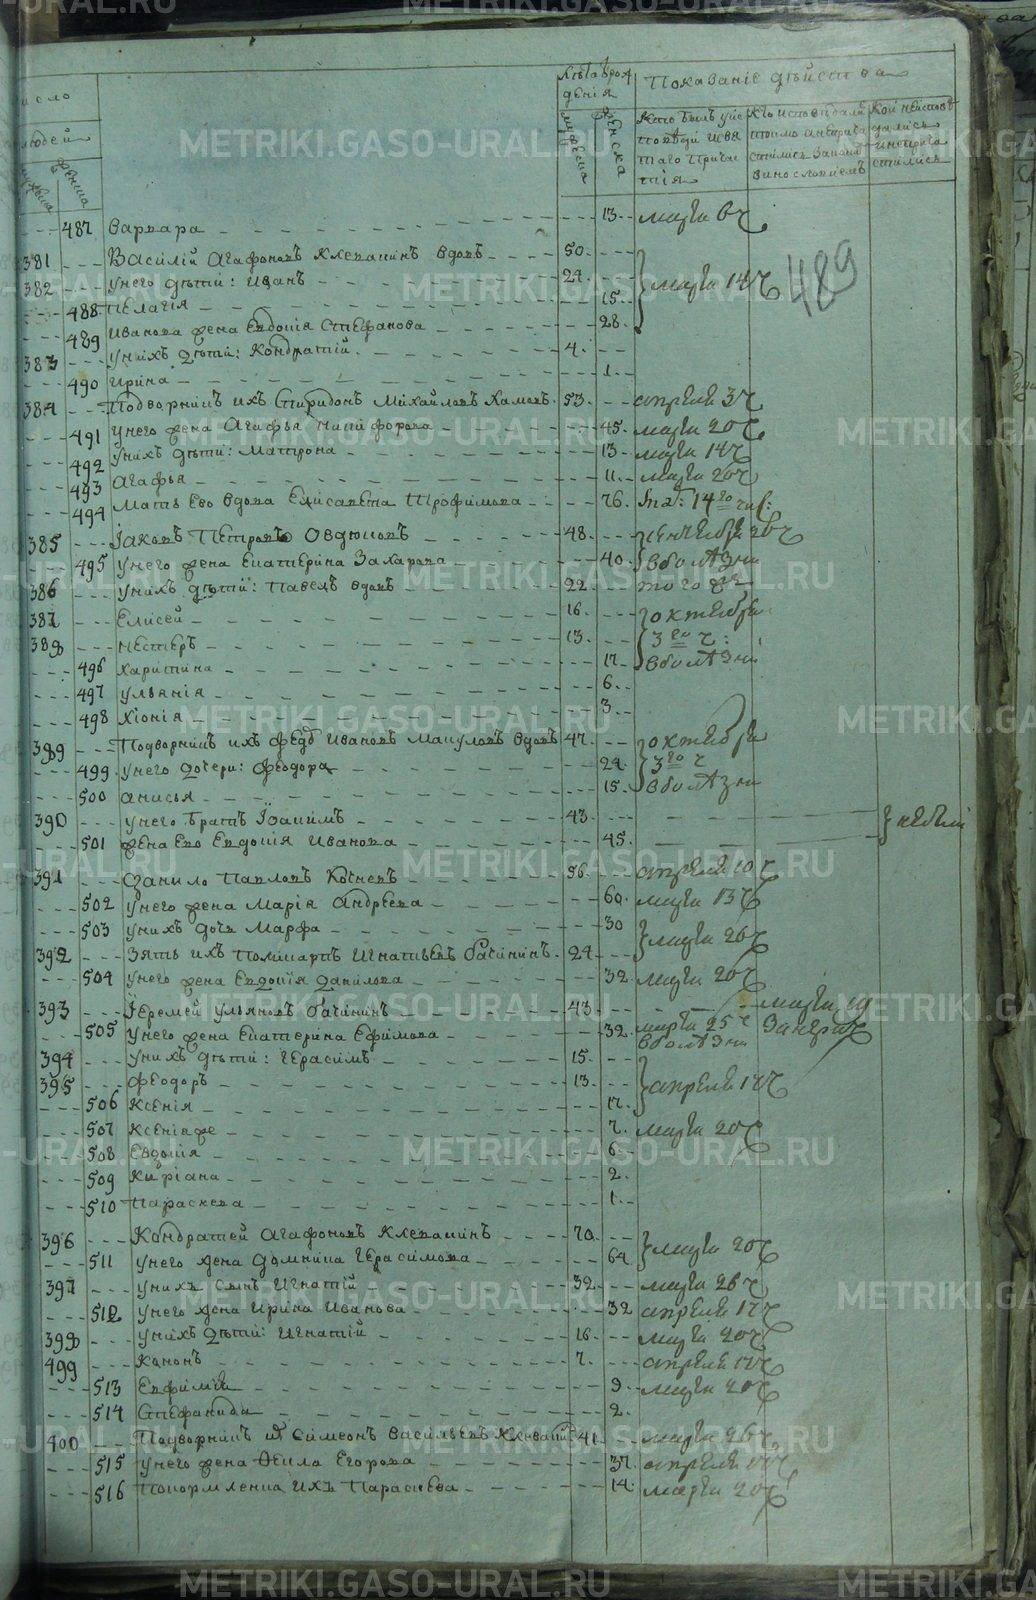 Лѣта рож
денія
Показаніе дѣйства
людей
мужеска
женска
Кто былъ уис
повѣди и свя
таго прича
стія
Кои неиспов
487 Варвара 13 марта 6 ч
381 Василій Агафоновъ Клепанинъ вдовъ 50
489
382 у него дѣти: Иванъ 24 марта 14 ч
488 Пелагія 15
489 Иванова жена Евдокія Стефанова 28
383 у нихъ дѣти: Кондратій 4
490 Ирина 1
384 Подворникъ ихъ Спиридонъ Михайловъ Хамовъ 53 апреля 3 ч
491 у него жена Агафья Никифорова 45 марта 20 ч
492 у нихъ дѣти: Матрона 13 марта 14 ч
493 Агафья 11 марта 20 ч
494 Мать Ево вдова Елисавета Трофимова 76
385 Іаковъ Петровъ Овдюковъ 48
495 у него жена Екатерина Захарова 40 в болѣзни
386 у нихъ дѣти: Павелъ вдовъ 22 того ж
387 Елисей 16 октября
388 Нестеръ 13 3го ч:
496 Харитина 17 в болѣзни
497 Ульянія 6
498 Хіонія 3
389 Подворникъ ихъ Федоръ Ивановъ вдовъ 47 октября
499 у него дочери: Феодора 24 3го ч
500 Анисья 15 в болѣзни
390 у него братъ Іоакимъ 43 небыли
501 жена Ево Евдокія Иванова 45
391 Данило Павловъ 56 апреля 10 ч
502 у него жена Марія Андреева 60 марта 13 ч
503 у нихъ дочь Марфа 30 марта 26 ч
392 Зять ихъ Поликарпъ Игнатьевъ Бачининъ 24
504 у него жена Евдокія Данилова 32 марта 20 ч
393 Іеремей Ульяновъ Бачининъ 43 марта
505 у него жена Екатерина Ефимова 32 марта 25 ч в болѣзни
394 у нихъ дѣти: Герасимъ 15
395 Феодоръ 13 апреля 17 ч
506 Ксенія 17
507 Ксенія же 7 марта 20 ч
508 Евдокія 6
509 Киріана 2
510 Параскева 1
396 Кондратей Агафоновъ Клепанинъ 70 марта 20 ч
511 у него жена Домника Герасимова 64
397 у нихъ сынъ Игнатій 32 марта 26 ч
512 у него жена Ирина Иванова 32 апреля 17 ч
398 у нихъ дѣти: Игнатій 16 марта 20 ч
499 Кононъ 7 апреля 17 ч
513 Евфимія 9 марта 20 ч
514 Стефанида 2
400 Подворникъ их Симеонъ Васильевъ 41 марта 26 ч
515 у него жена Акила Егорова 37 апреля
516 Покормленка ихъ Параскева 14 марта 20 ч
METRIKI.GASO-URAL.RU